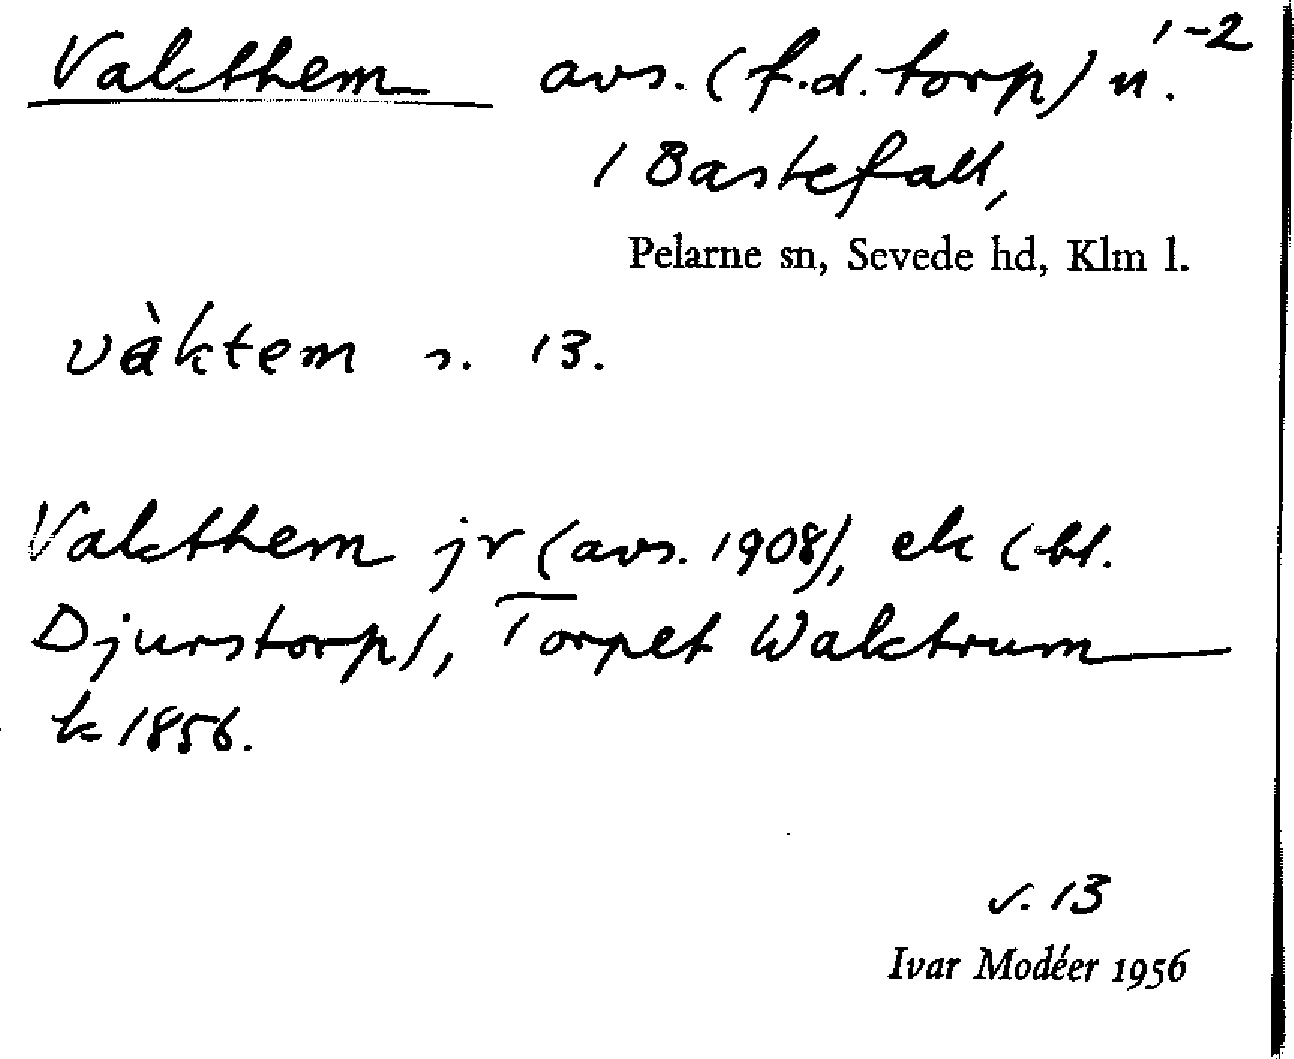 Vakthem avs. (f.d. torp) u. 1-2
1 Bastefall,
Pelarne sn, Sevede hd, Klm l.
vàktem s. 13.
Vakthem jr (avs. 1908), ek (bl.
Djurstorp), Torpet Waktrum
k 1856.
s. 13
Ivar Modéer 1956